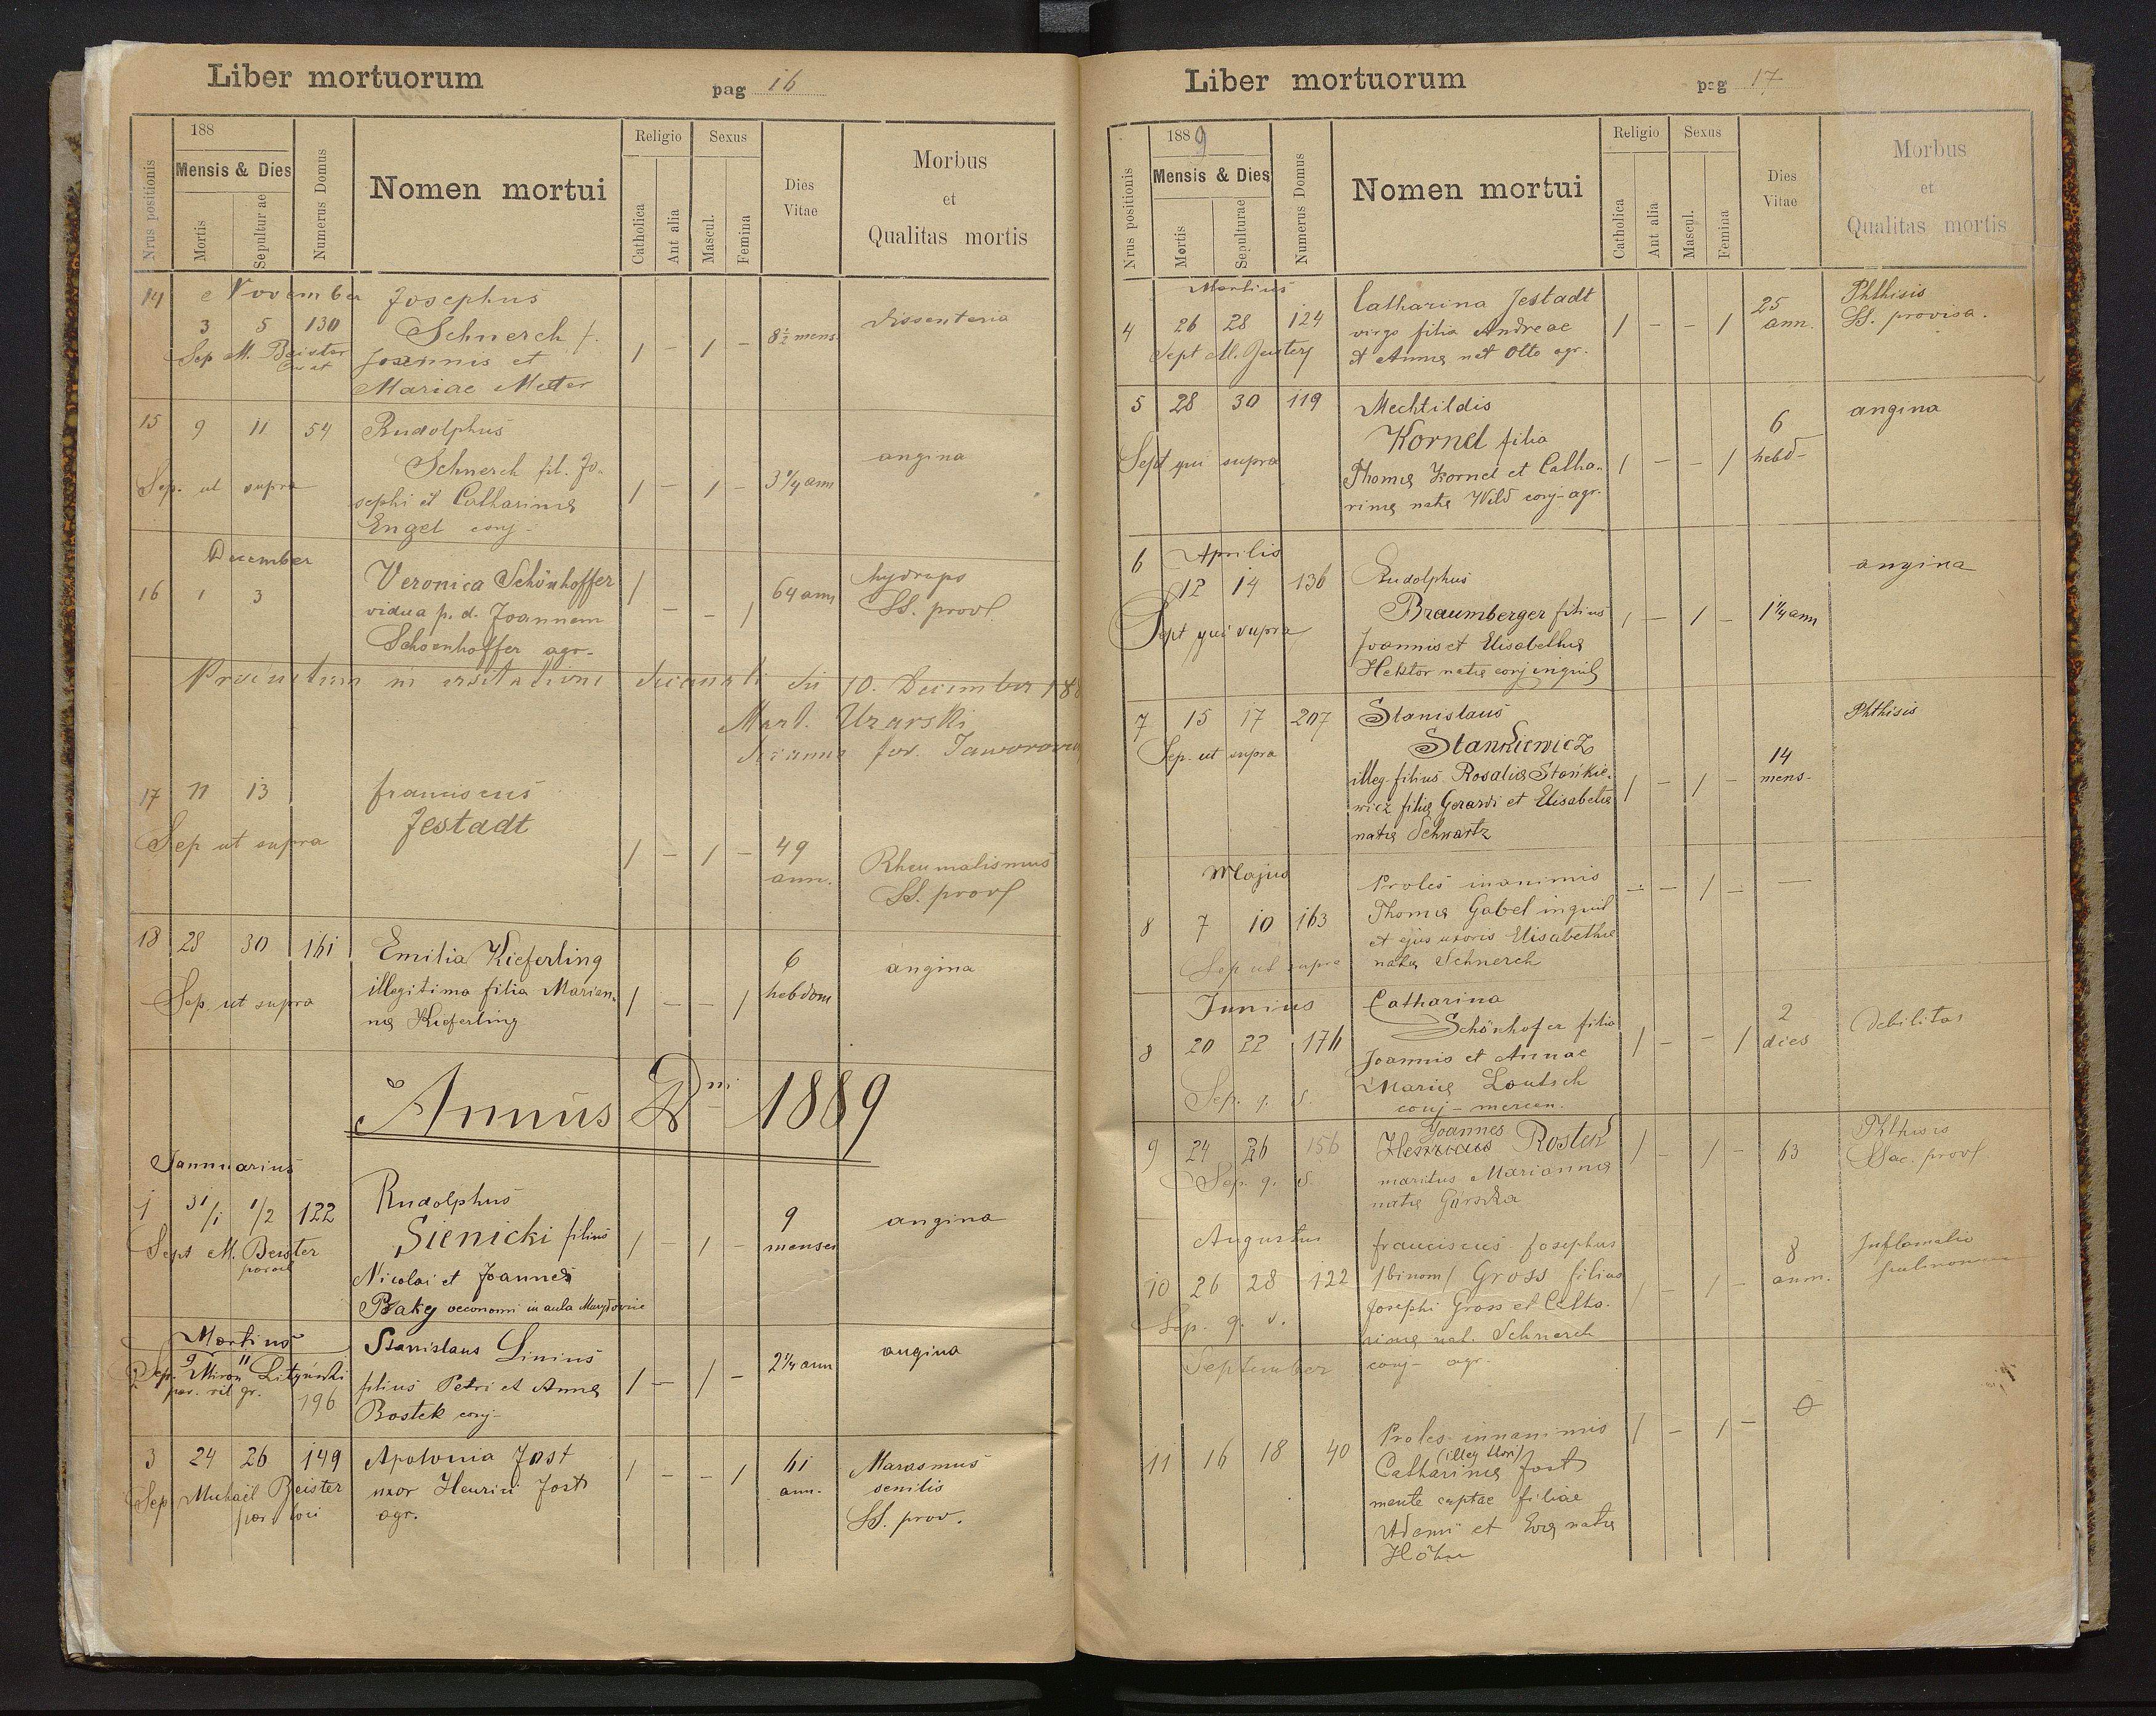 Liber mortuorum
pag 16
Nrus positionis
188
Mensis & Dies
Mortis
Sepulturae
Numerus Domus
Nomen mortui
Religio
Catholica
Aut alia
Sexus
Mascul.
Femina
Dies
Vitae
Morbus
et
Qualitas mortis
14 November Josephus
3 5 130 Schnerch f. 8½ mens dissenteria
Sep M. Beister Joannis et 1 - 1 -
Mariae Metter
15 9 11 54 Rudolphus
Schnerch fil. Jo- angina
Sep. ut supra sephi et Catharinę 1 - 1 - 3¼ ann
Engel conj-
December
16 1 3 Veronica Schönhoffer 1 - - 1 64 ann hydrops
vidua p. d. Joannem SS. prov
Schoenhoffer agr-
in visitatione decanali die 10. December 188
Decanus for. Jaworoviensis
17 11 13 franciscus
Jestadt
Sep ut supra 1 - 1 - 49
ann. Rheumatismus
SS. prov
18 28 30 161 Emilia Kieferling 6 angina
illegitima filia Marian- 1 - - 1 hebdom
Sep ut supra nę Kieferling
Annus Dni 1889
Jannuarius
1 31/1 1/2 122 Rudolphus 9 angina
Sienicki filius 1 - 1 - menses
Sept M. Beister Nicolai et Joannes
oeconomi in aula
Martius Stanislaus Linius
2 9 11 2¼ ann angina
Sep. Miron Lityński filius Petri et Annę 1 - 1 -
par. rit gr. 196 Rostek conj-
3 24 26 149 Apolonia Jost 1 - - 1 61 Marasmus
Sep Michaël Beister uxor Henrici Jost ann. senilis
par loci agr. SS. prov.
Liber mortuorum
pag 17
Nrus positionis
1889
Mensis & Dies
Mortis
Sepulturae
Numerus Domus
Nomen mortui
Religio
Catholica
Aut alia
Sexus
Mascul.
Femina
Dies
Vitae
Morbus
et
Qualitas mortis
Martius Catharina Jestadt 25 Phthisis
4 26 28 124 virgo filia Andreae 1 - - 1 ann. SS. provisa.
Sept M. Beister et Annę nat Otto agr.
5 28 30 119 Mechtildis 6 angina
Kornel filia
Sept qui supra Thomę Kornel et Catha- 1 - - 1 hebd-
rinę natę Wild conj- agr.
6 Aprilis angina
12 14 136 Rudolphus
Braumberger filius 1 - 1 - 1¼ ann
Sept qui supra Joannis et Elisabethę
Hektor natę conj inquil
7 15 17 207 Stanislaus Phthisis
Sep. ut supra Stankiewicz 14
illeg. filius Rosalię Stańkie- 1 - 1 - mens-
wicz filię Gerardi et Elisabetę
natę Schwartz
Majus Proles inanimis - - 1 - -
8 7 10 163 Thomę Gabel inquil
et ejus uxoris Elisabethę
Sep ut supra natę Schnerch
Junius Catharina
Schönhofer filia 2 debilitas
8 20 22 176 Joannis et Annae 1 - - 1 dies
Sep. q. s. Marię Loutsch
conj- mercen.
Joannes
9 24 26 156 Henricus Rostek 1 - 1 - 63 Phthisis
Sep. q. s. maritus Mariannę SSac. prov
natę Górska
Augustus franciscus Josephus 8 Inflamatio
10 26 28 122 /binom/ Gross filius 1 - 1 - ann. pulmonum
Sep. q. s. Josephi Gross et Catha-
rinę nat. Schnerch
September conj- agr.
Proles innanimis 1 - 1 - 0
(illeg thori)
11 16 18 40 Catharinę Jost
mente captae filiae
Adami et Evę natę
Höhn